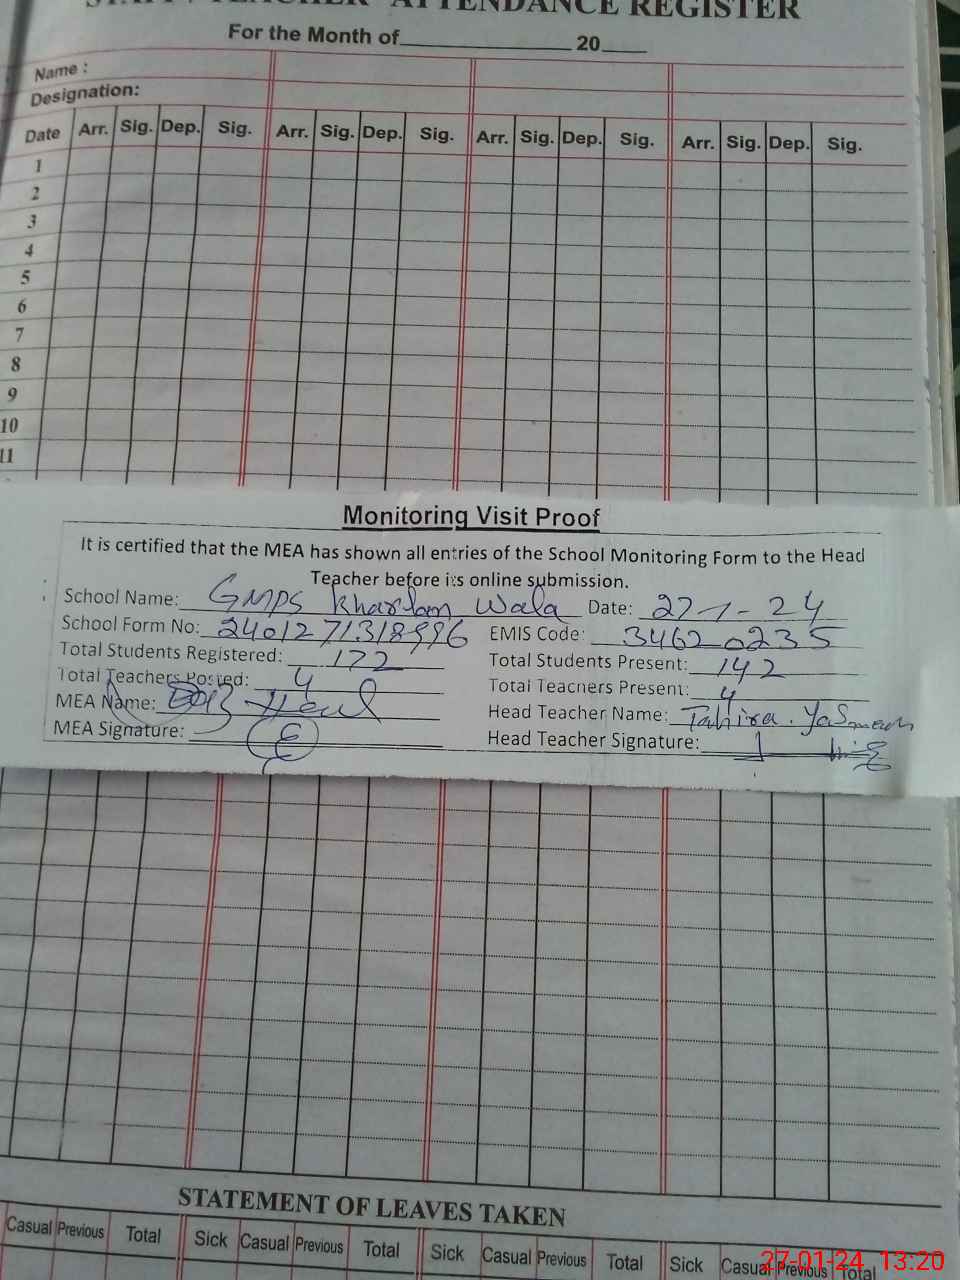 STAFF / TEACHER ATTENDANCE REGISTER
For the Month of 20
Name :
Designation:
Date Arr. Sig. Dep. Sig. Arr. Sig. Dep. Sig. Arr. Sig. Dep. Sig. Arr. Sig. Dep. Sig.
1
2
3
4
5
6
7
8
9
10
11
Monitoring Visit Proof
It is certified that the MEA has shown all entries of the School Monitoring Form to the Head
Teacher before its online submission.
School Name: GMPS Wala Date: 27-1-24
School Form No: EMIS Code: 34620235
Total Students Registered: 172 Total Students Present: 142
Total Teachers Posted: 4 Total Teachers Present: 4
MEA Name: Head Teacher Name: Tahira. Yasmeen
MEA Signature: Head Teacher Signature:
STATEMENT OF LEAVES TAKEN
Casual Previous Total Sick Casual Previous Total Sick Casual Previous Total Sick Casual Previous Total
27-01-24 13:20